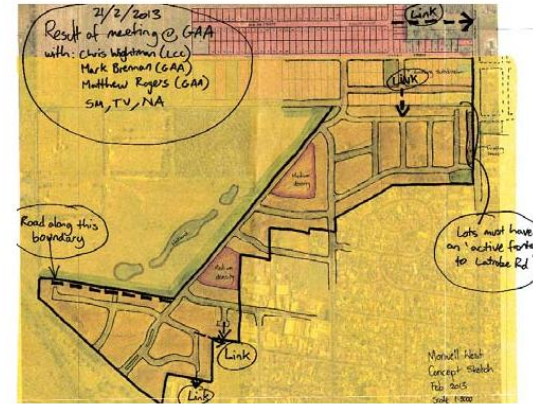 21/2/2013
Result of meeting @ GAA
with: Chris Wightman (LCC)
Mark Brennan (GAA)
Matthew Rogers (GAA)
SM, TV, NA
Link
Link
Medium
density
Road along this
boundary
Wetland
Medium
density
Lots must have
an 'active
to Latrobe Rd
Link
Link
Morwell West
Concept Sketch
Feb 2013
Scale 1:3000